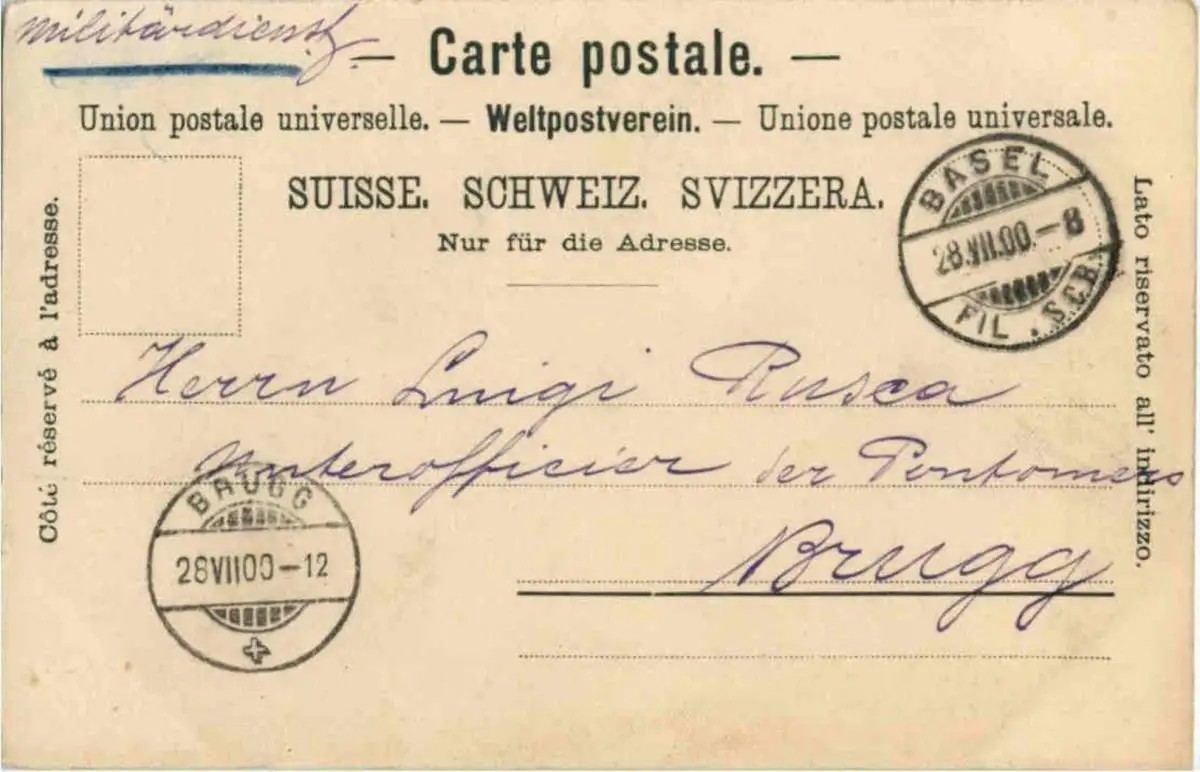 Militärdienst
— Carte postale. —
Union postale universelle. — Weltpostverein. — Unione postale universale.
SUISSE. SCHWEIZ. SVIZZERA.
Nur für die Adresse.
Côté réservé à l'adresse.
Lato riservato all' indirizzo.
BASEL
28.VII.00.–8
FIL. S.C.B.
Herrn Luigi Rusca
Unterofficier der Pontoniers
Brugg
BRUGG
28VII00–12